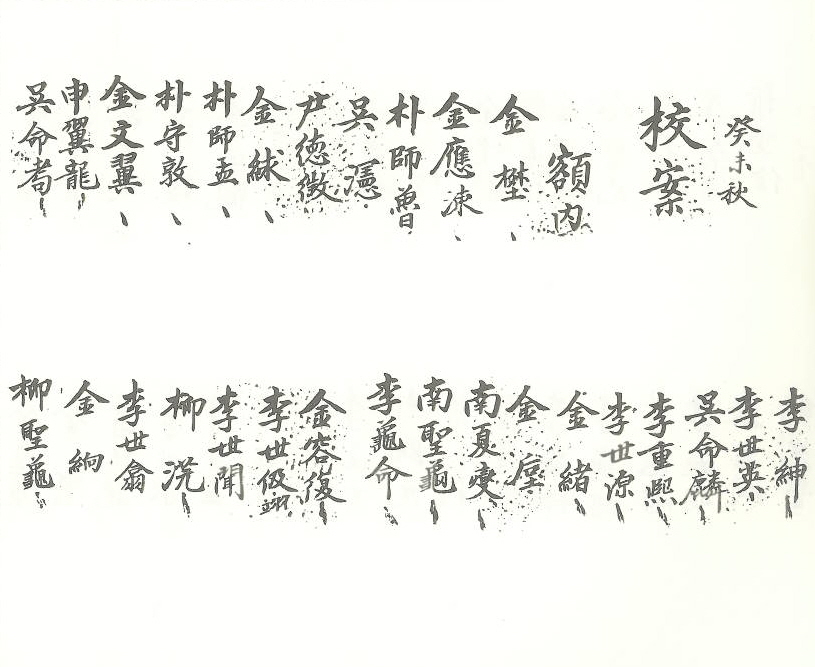 癸未秋
校案
額内
金 㙷
金應涑
朴師曾
吳 瀗
尹德徵
金 絿
朴師孟
朴守敦
金文翼
申翼龍
吳命耉
李 紳
李世英
吳命麟
李重熙
李世源
金 緖
金 垕
南夏燮
南聖龜
李龜命
金容復
李世伋
李世聞
柳 滉
李世翕
金 絅
柳聖龜